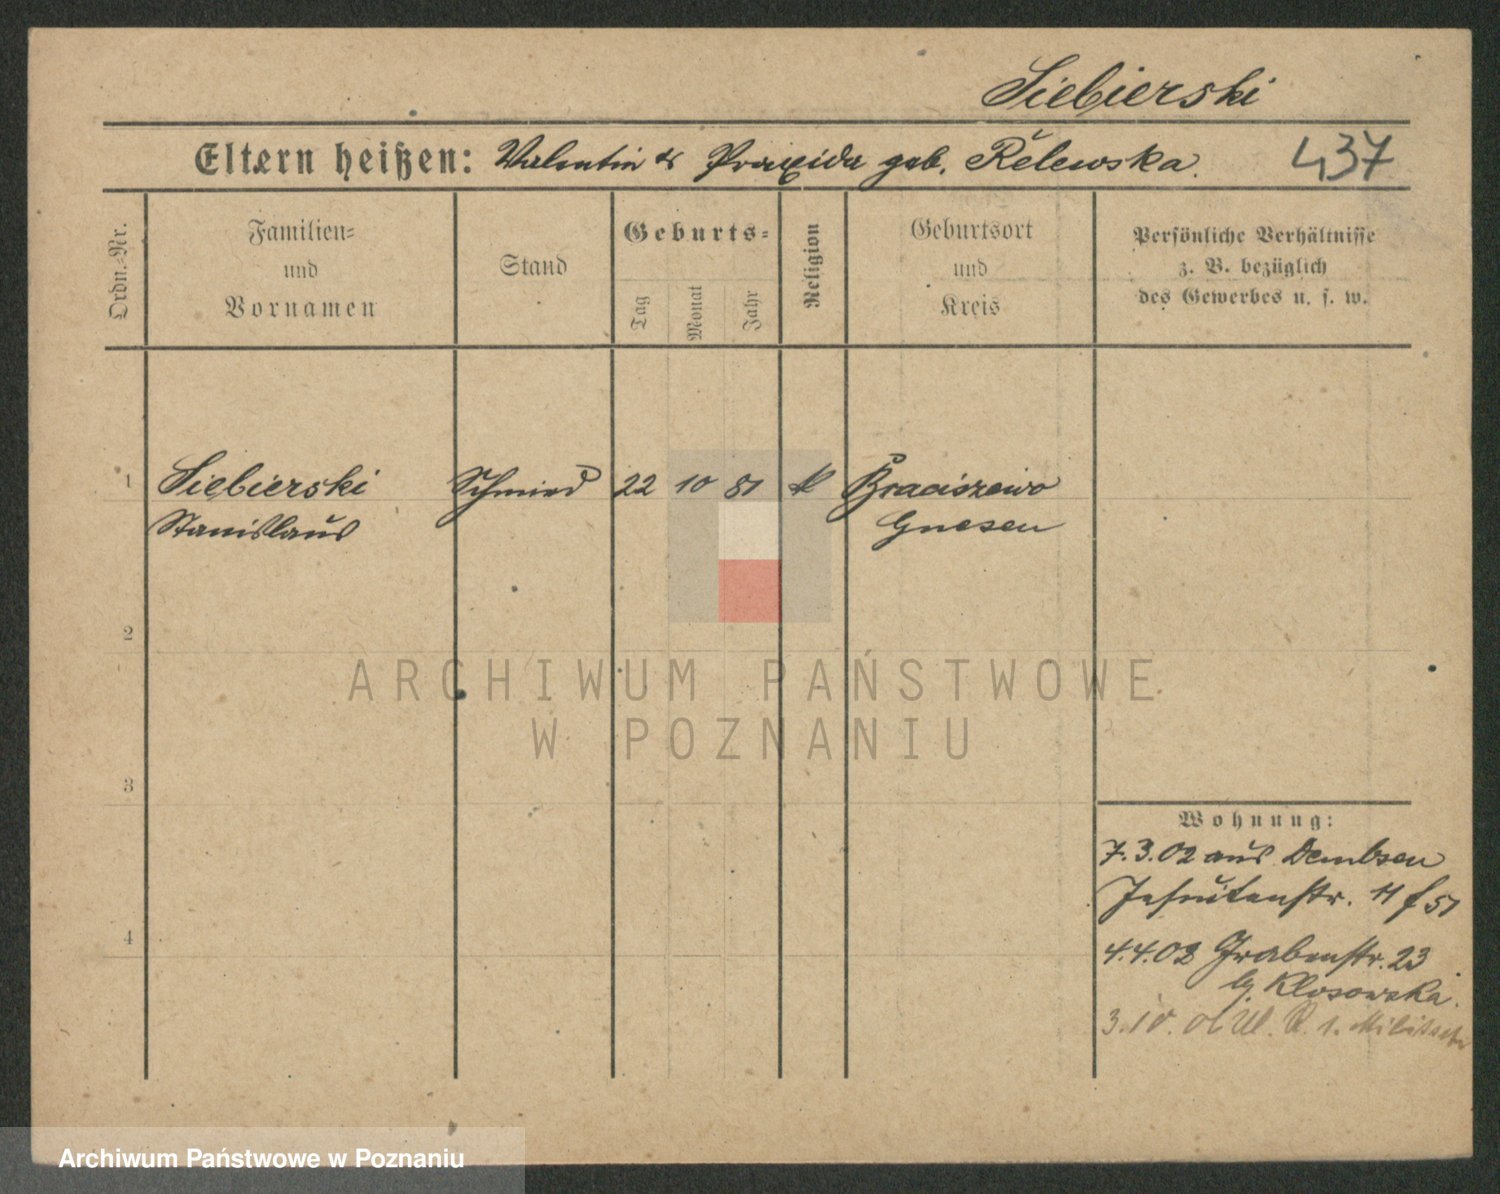 Siebierski
Eltern heißen: Valentin & Praxida geb. Relewska.
437
Ordn.-Nr.
Familien-
und
Vornamen
Stand
Geburts-
Tag
Monat
Jahr
Religion
Geburtsort
und
Kreis
Persönliche Verhältnisse
z. B. bezüglich
des Gewerbes u. s. w.
1 Siebierski Schmied 22 10 81 k Braciszewo
Stanislaus Gnesen
2
ARCHIWUM PAŃSTWOWE
W POZNANIU
3
4
Wohnung:
7.3.02 aus Dembsen
Jesuitenstr. 11 f 51
4.4.02 Grabenstr. 23
b. Klosowska.
3.10. 02 Ul. R. 1. Militsch
Archiwum Państwowe w Poznaniu